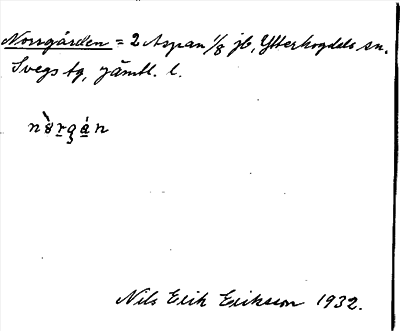 Norrgården = 2 Aspan 1/8 jb, Ytterhogdals sn.
Svegs tg, jämtl. l.
Nils Erik Eriksson 1932.